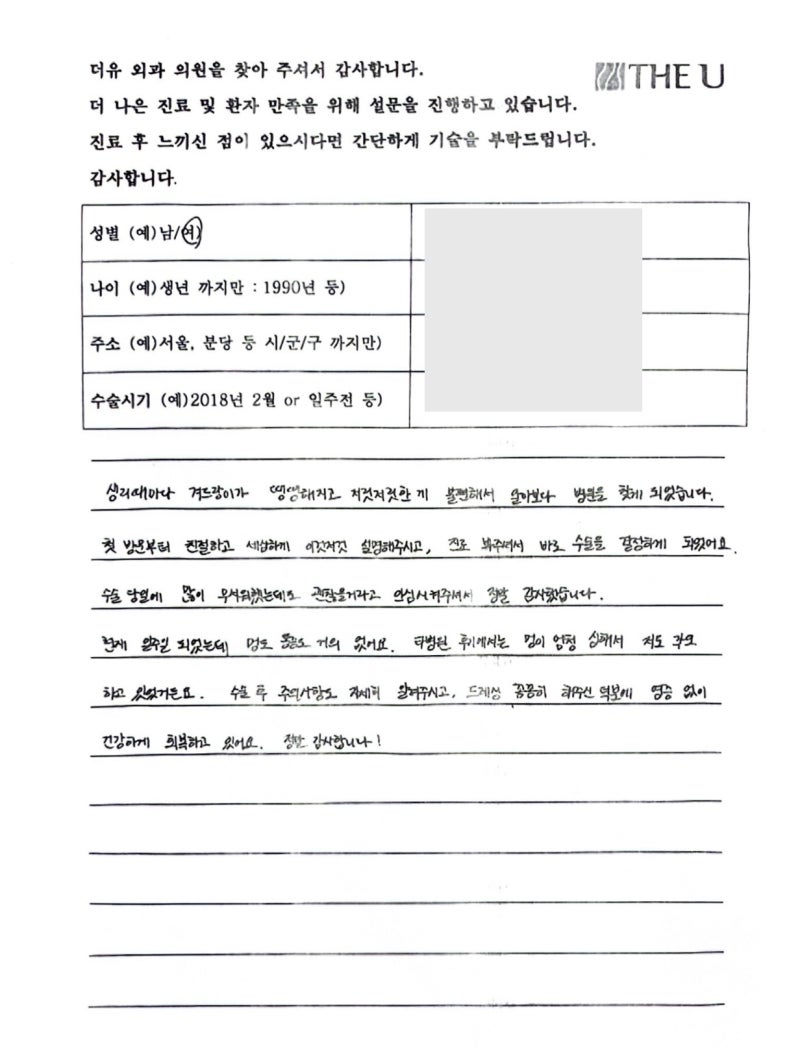 더유 외과 의원을 찾아 주셔서 감사합니다.
THE U
더 나은 진료 및 환자 만족을 위해 설문을 진행하고 있습니다.
진료 후 느끼신 점이 있으시다면 간단하게 기술을 부탁드립니다.
감사합니다.
성별 (예)남/여)
나이 (예)생년 까지만 : 1990년 등)
주소 (예)서울, 분당 등 시/군/구 까지만)
수술시기 (예)2018년 2월 or 일주전 등)
생리때마다 겨드랑이가 땡땡해지고 저릿저릿한게 불편해서 알아보다 병원을 찾게 되었습니다.
첫 방문부터 친절하고 세심하게 이것저것 설명해주시고, 진료 봐주셔서 바로 수술을 결정하게 되었어요.
수술 당일에 많이 무서워했는데도 괜찮을거라고 안심시켜주셔서 정말 감사했습니다.
현재 일주일 되었는데 멍도 통증도 거의 없어요. 타병원 후기에서는 멍이 엄청 심해서 저도 각오
하고 있었거든요. 수술 후 주의사항도 자세히 알려주시고, 드레싱 꼼꼼히 해주신 덕분에 염증 없이
건강하게 회복하고 있어요. 정말 감사합니다!